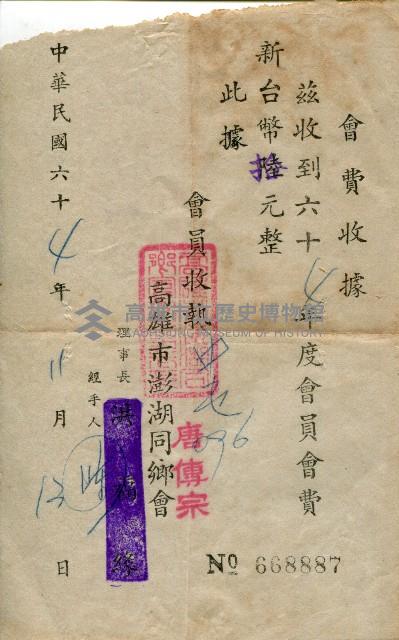 會費收據
茲收到六十4年度會員會費
新台幣拾元整
此據
會員收執
唐傳宗
高雄市澎湖同鄉會
理事長
經手人
中華民國六十4年11月12日
№ 668887
高雄市立歷史博物館
KAOHSIUNG MUSEUM OF HISTORY